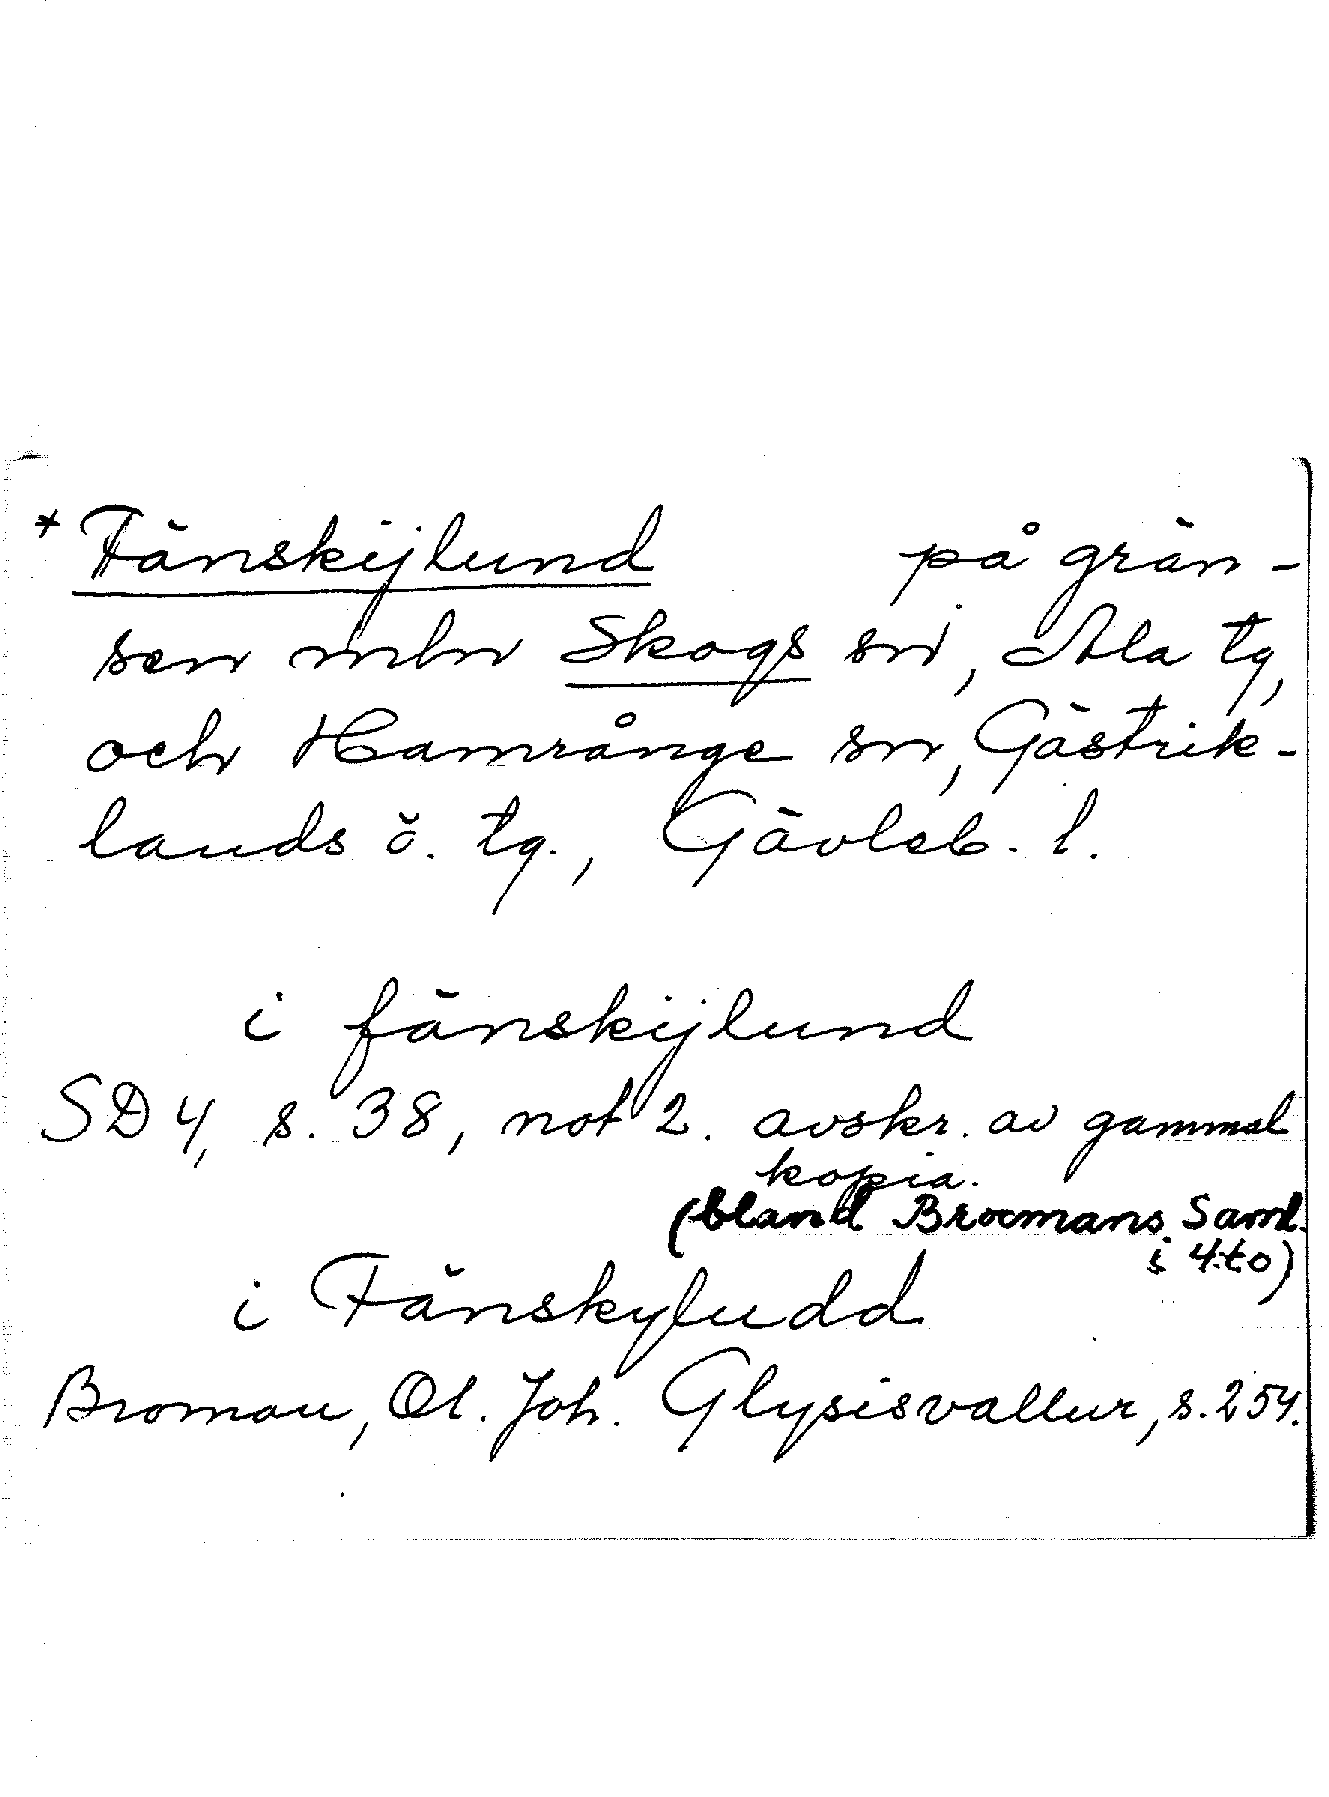 * Fänskijlund på grän-
sen mln Skogs sn, Ala tg,
och Hamrånge sn, Gästrik-
lands ö. tg., Gävleb. l.
i fänskijlund
SD 4, s. 38, not 2. avskr. av gammal
kopia.
(bland Brocmans Saml.
i 4:to)
i Fänskyludd
Broman, Ol. Joh. Glysisvallur, s. 254.